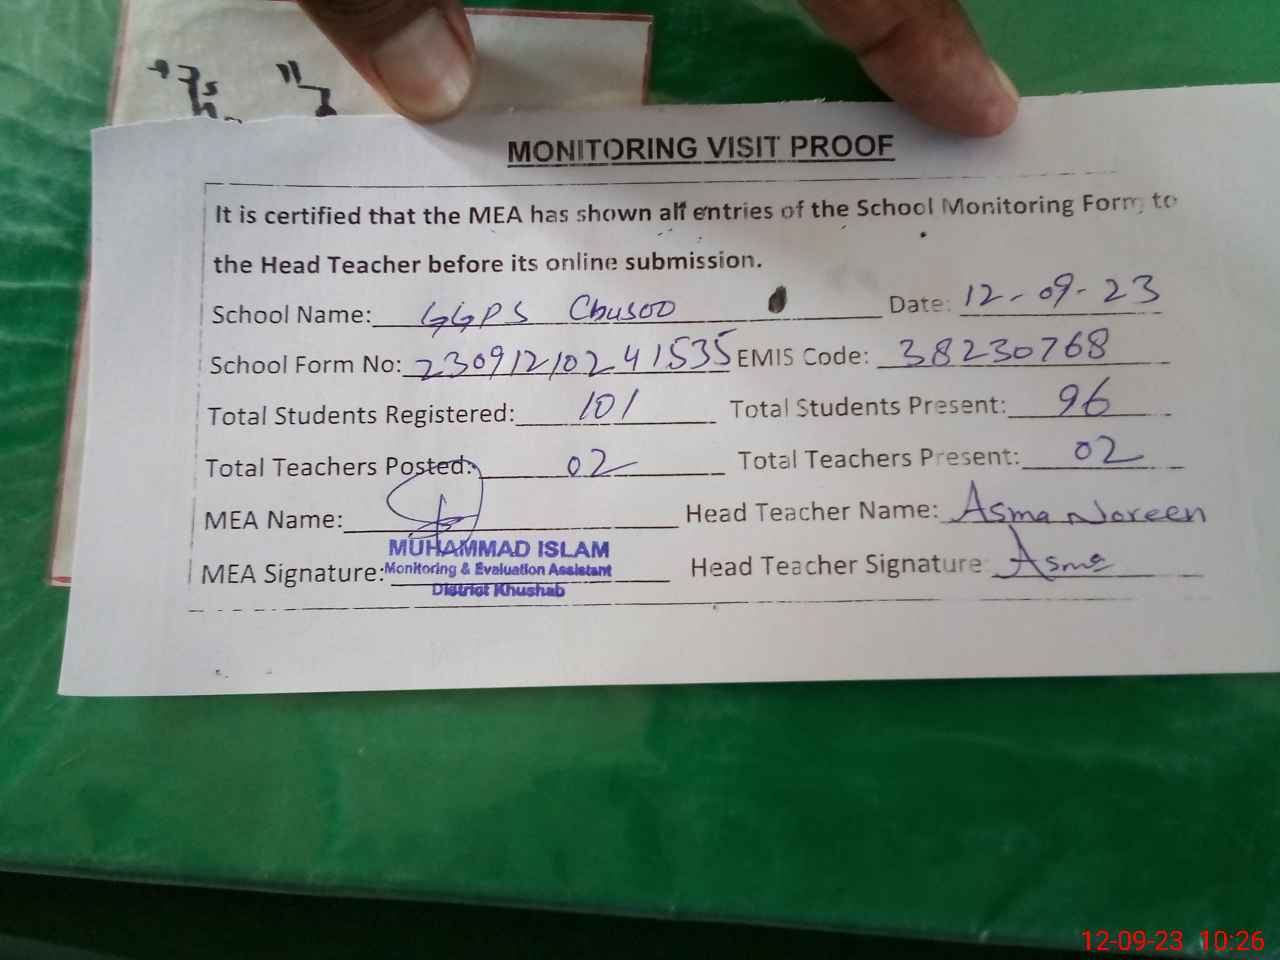 MONITORING VISIT PROOF
It is certified that the MEA has shown all entries of the School Monitoring Form to
the Head Teacher before its online submission.
School Name: GGPS Chusoo Date: 12-09-23
School Form No: 23091210241535 EMIS Code: 38230768
Total Students Registered: 101 Total Students Present: 96
Total Teachers Posted: 02 Total Teachers Present: 02
MEA Name: Head Teacher Name: Asma Noreen
MUHAMMAD ISLAM
MEA Signature: Monitoring & Evaluation Assistant Head Teacher Signature: Asma
District Khushab
12-09-23 10:26